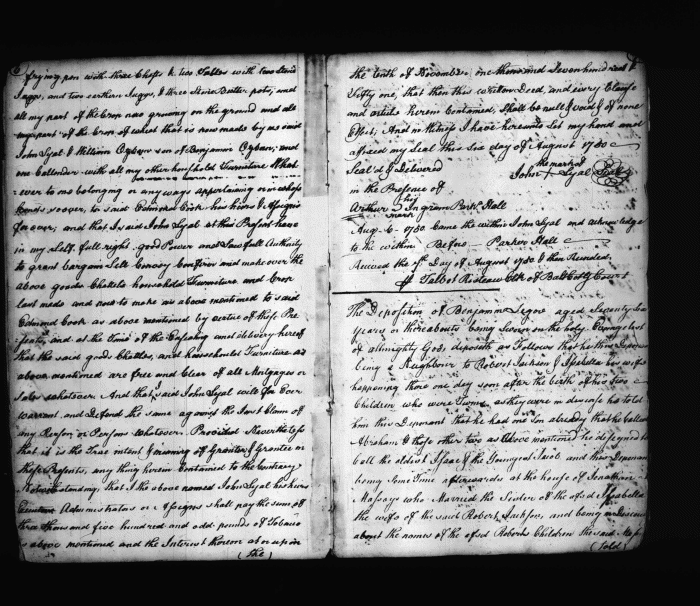 frying pan with three Chests & two Tables with two Stone
Juggs, and two earthern Juggs, & three Stone Butter pots, and
all my part of the Crop now growing on the ground and all
my part of the Crop of wheat that is now made by us said
John Syal & William Ogburn son of Benjamin Ogburn; and
one Cullender with all my other household Furniture What
ever to me belonging or any ways appertaining or in whose
hands soever, to said Edmond Cook his heirs & Assigns
for ever, and that I said John Syal at this Present have
in my Self full right good Power and Lawfull Authority
to grant bargain Sell Convey Confirm and make over the
above goods Chattels household Furniture and Crop
last made and now to make as above mentioned to said
Edmond Cook as above mentioned by virtue of these Pre
sents, and at the Time of the Ensealing and delivery hereof
that the said goods Chattles, and household Furniture as
above mentioned are free and Clear of all Mortgages or
Sales whatsoever. And that I said John Syal will for Ever
Warrant and Defend the same against the Just Claim of
any Person or Persons whatsoever. Provided Nevertheless
that it is the True intent & meaning of Grantor & Grantee in
these Presents, any thing herein Contained to the Contrary
Notwithstanding, that I the above named John Syal his heirs
Administrators or Assigns shall pay the sum of
three thousand five hundred and odd pounds of Tobaco
as above mentioned and the Interest thereon at or upon
(The)
the tenth of November, one thousand Seven hundred &
Fifty one, that then this Deed, and every Clause
and article herein Contained, Shall be null & void & of none
Effect; And in Witness I have hereunto Set my hand and
affixed my Seal this Six day of August 1750
Seal'd & Delivered the mark of
in the Presence of John + Syal Seal
his
Arthur Ingram Parkr Hall
mark
Aug. 6. 1750. Came the within John Syal and acknowledge
to the within Before Parker Hall
Received the Day of August 1750 & then Recorded.
Talbot Risteau Clk of Balt Coty Court
The Deposition of Benjamin Legoe aged Seventy
Years or thereabouts being Sworn on the holy Evangelist
of allmighty God, deposeth as Follows that he this Deponant
being a Neighbour to Robert Jackson & Isabella his wife
happening there one day soon after the birth of his two
Children who were Twins as they were in discourse he told
him this Deponant that he had one Son already that he Called
Abraham & these other two as above mentioned he designed to
Call the oldest Isaac & the Youngest Jacob and this Deponant
being Some Time afterwards at the house of Jonathan
Massey who Married the Sister of the afsd Isabella
the wife of the said Robert Jackson, and being in Discourse
about the names of the afsd Roberts Children the said
(Told)